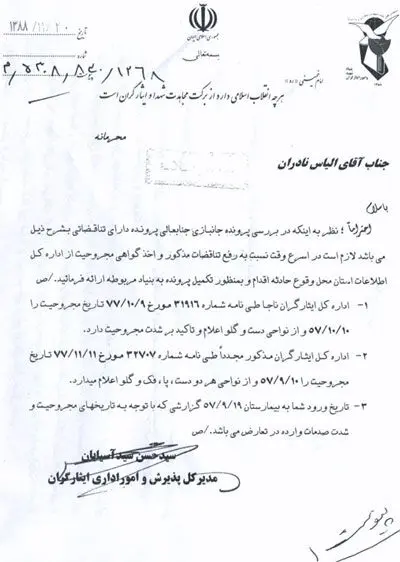 جمهوری اسلامی ایران
بسمه تعالی
تاریخ ۱۳۸۸/۱۱/۲۰
شماره
هرچه انقلاب اسلامی دارد از برکت مجاهدت شهدا و ایثارگران است
امام خمینی «ره»
محرمانه
جناب آقای الیاس نادران
باسلام
احتراماً ؛ نظر به اینکه در بررسی پرونده جانبازی جنابعالی پرونده دارای تناقضاتی بشرح ذیل
می باشد لازم است در اسرع وقت نسبت به رفع تناقضات مذکور و اخذ گواهی مجروحیت از اداره کل
اطلاعات استان محل وقوع حادثه اقدام و بمنظور تکمیل پرونده به بنیاد مربوطه ارائه فرمائید./ص
۱- اداره کل ایثارگران ناجا طی نامه شماره ۳۱۹۱۶ مورخ ۷۷/۱۰/۹ تاریخ مجروحیت را
۵۷/۱۰/۱۰ و از نواحی دست و گلو اعلام و تاکید بر شدت مجروحیت دارد.
۲- اداره کل ایثارگران مذکور مجدداً طی نامه شماره ۳۲۷۰۷ مورخ ۷۷/۱۱/۱۱ تاریخ
مجروحیت را ۵۷/۹/۱۰ و از نواحی هر دو دست ، پا ، فک و گلو اعلام میدارد.
۳- تاریخ ورود شما به بیمارستان ۵۷/۹/۱۹ گزارشی که با توجه به تاریخهای مجروحیت و
شدت صدمات وارده در تعارض می باشد./ص
سیدحسن سیدآسیابان
مدیرکل پذیرش و اموراداری ایثارگران